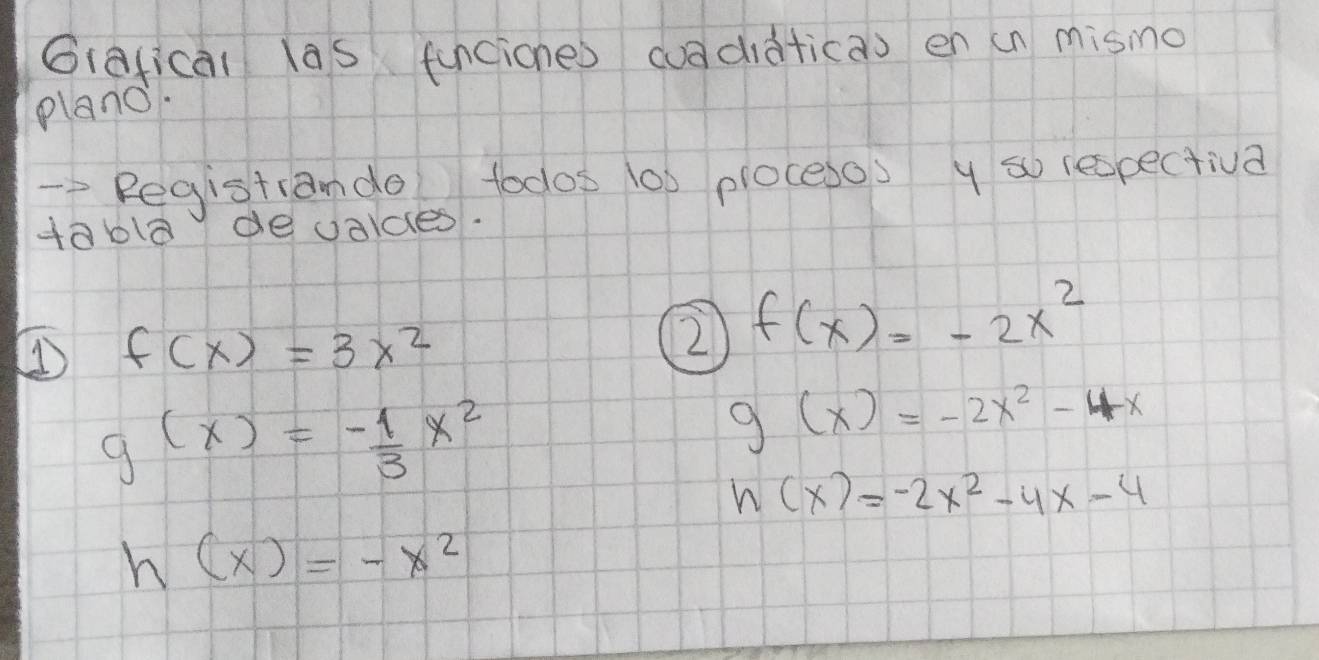 Graficar las funciones cuadráticas en un mismo
plano.
-> Registramdo todos los procesos y su respectiva
tabla de valores.
① f(x) = 3x²
g(x) = -1/3 x²
h(x) = -x²
② f(x) = -2x²
g(x) = -2x² - 4x
h(x) = -2x² - 4x - 4